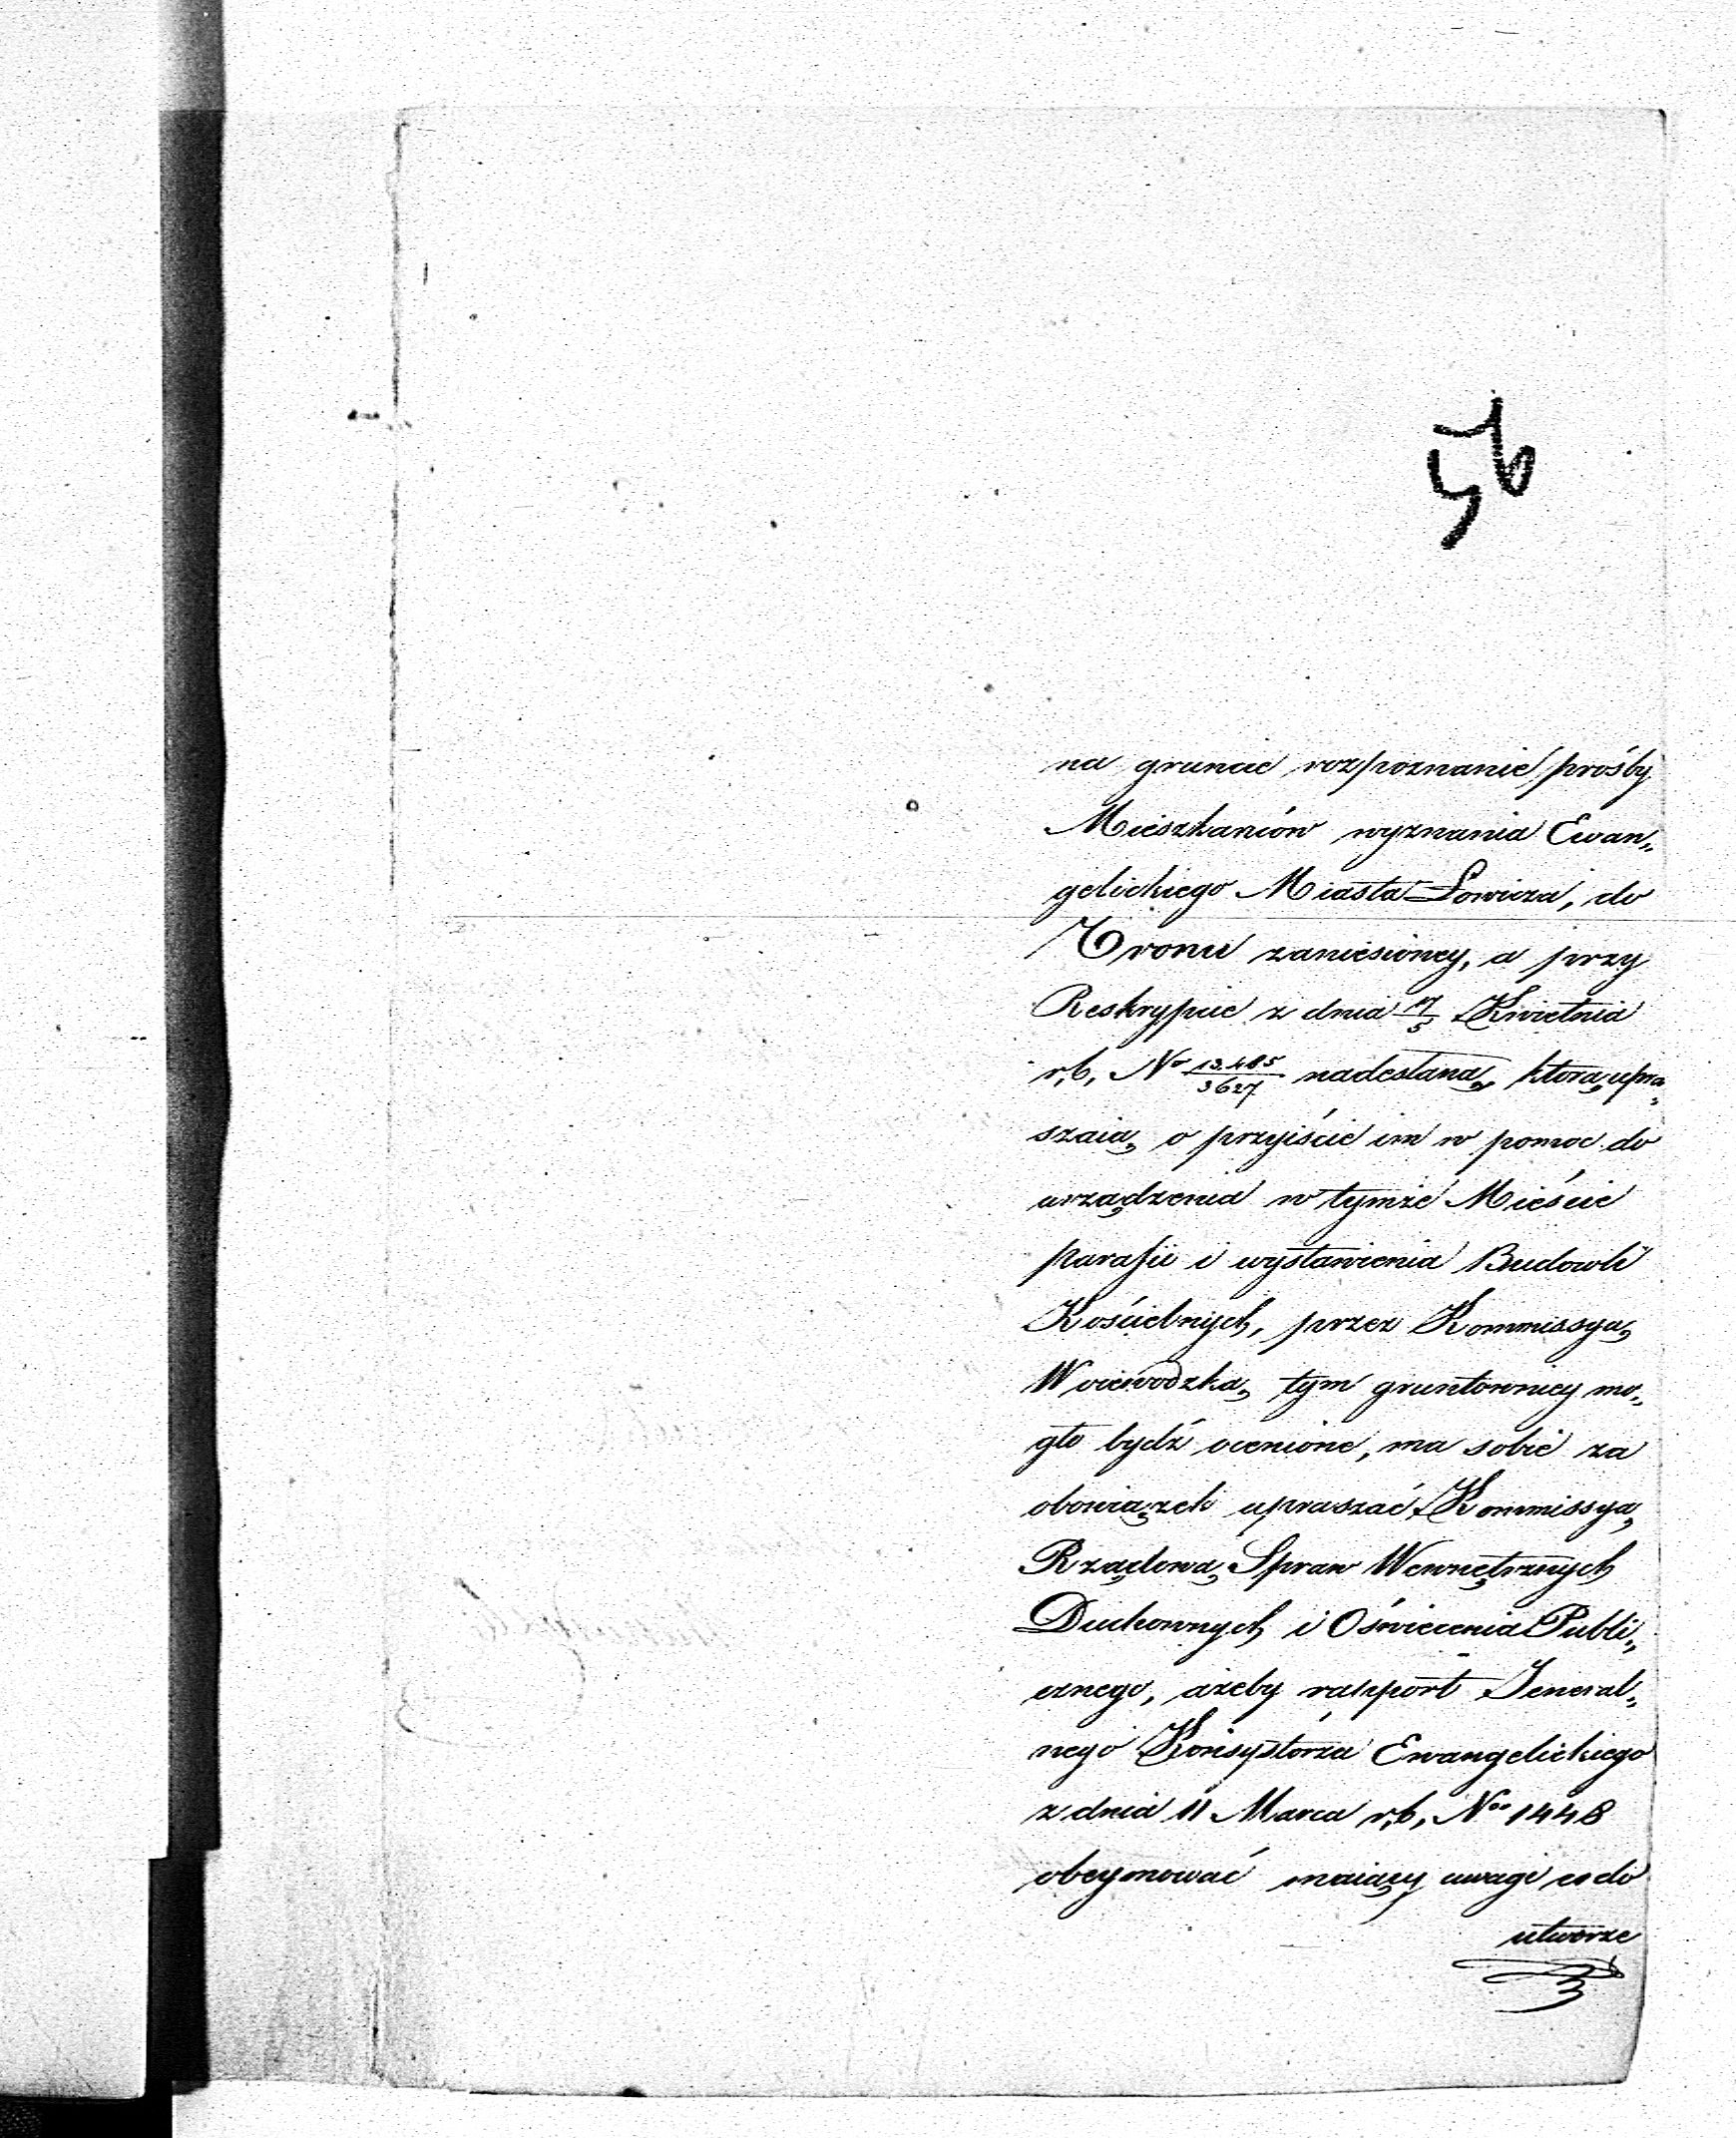 56
na gruncie rozpoznanie prośby
Mieszkańców wyznania Ewan„
gelickiego Miasta Łowicza, do
Tronu zaniesioney, a przy
Reskrypcie z dnia 17/5 Kwietnia
r, b, No 13.485/3627 nadesłaną, którą upra„
szaią o przyiście im w pomoc do
urządzenia w tymże Mieście
parafii i wystawienia Budowli
Kościelnych, przez Kommissyą
Woiewodzką tym gruntowniey mo„
gło bydź ocenione, ma sobie za
obowiązek upraszać Kommissyą
Rządową Spraw Wewnętrznych
Duchownych i Oświecenia Publi„
cznego, ażeby rapport Jeneral„
nego Konsystorza Ewangelickiego
z dnia 11 Marca r, b, No 1448
obeymować maiący uwagi co do
utworze